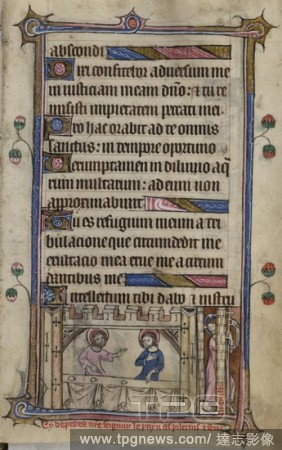 abscondi
Dixi confitebor adversum me
iniusticiam meam dño: et tu re
misisti impietatem peccati mei
Pro hac orabit ad te omnis
sanctus: in tempore oportuno
Verumptamen in diluvio aq̃
rum multarum: ad eum non
approximabunt
Tu es refugium meum a tri
bulacione que circumdedit me
exultacio mea erue me a circum
dantibus me
Intellectum tibi dabo et instru
TPG
www.tpgnews.com/達志影像